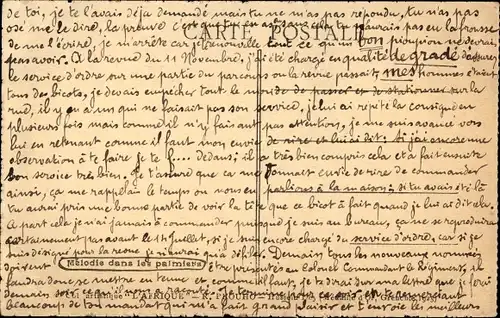 de toi, je te l'avais déja demandé mais tu ne m'as pas répondu, tu n'as pas
osé me le dire, la preuve c'est que
CARTE POSTALE
de me l'écrire, je m'arrête car je tout ce qu'un bon pioupiou ne devrai
pas avoir. A la revue du 11 Novembre, j'ai été chargé en qualité de gradé d'assurer
le service d'ordre sur une partie du parcours ou la revue passait, mes hommes étaient
tous des bicots, je devais empêcher tout le monde de passer et de stationner sur la
rue, il y en a un qui ne faisait pas son service, je lui ai répété la consigne
plusieurs fois mais comme il n'y faisait pas attention, je me suis avancé vers
lui en retenant comme il faut mon envie de rire et lui ai dit: Si j'ai encore une
observation à te faire je te f... dedans; il a très bien compris cela et a fait ensuite
son service très bien. Je t'assure que ça me donnait envie de rire de commander
ainsi, ça me rappelait le temps ou nous en parlions à la maison; si tu avais été là
tu aurais pris une bonne partie de voir la tête que ce bicot a fait quand je lui ai dit cela.
A part cela je n'ai jamais à commander puisque je suis au bureau, ça me se reproduira
certainement pas avant le 14 Juillet, si je suis encore chargé du service d'ordre, car si je
suis désigné pour la revue je n'aurai qu'à défiler. Demain tous les nouveaux nommés
doivent
Mélodie dans les palmiers
être présentés au Colonel Commandant le Régiment, il
faudra donc se mettre en tenue et comment, enfin
demain soir
L'AFRIQUE
beaucoup de ton mandat qui m'a fait bien grand plaisir et t'envoie les meilleurs